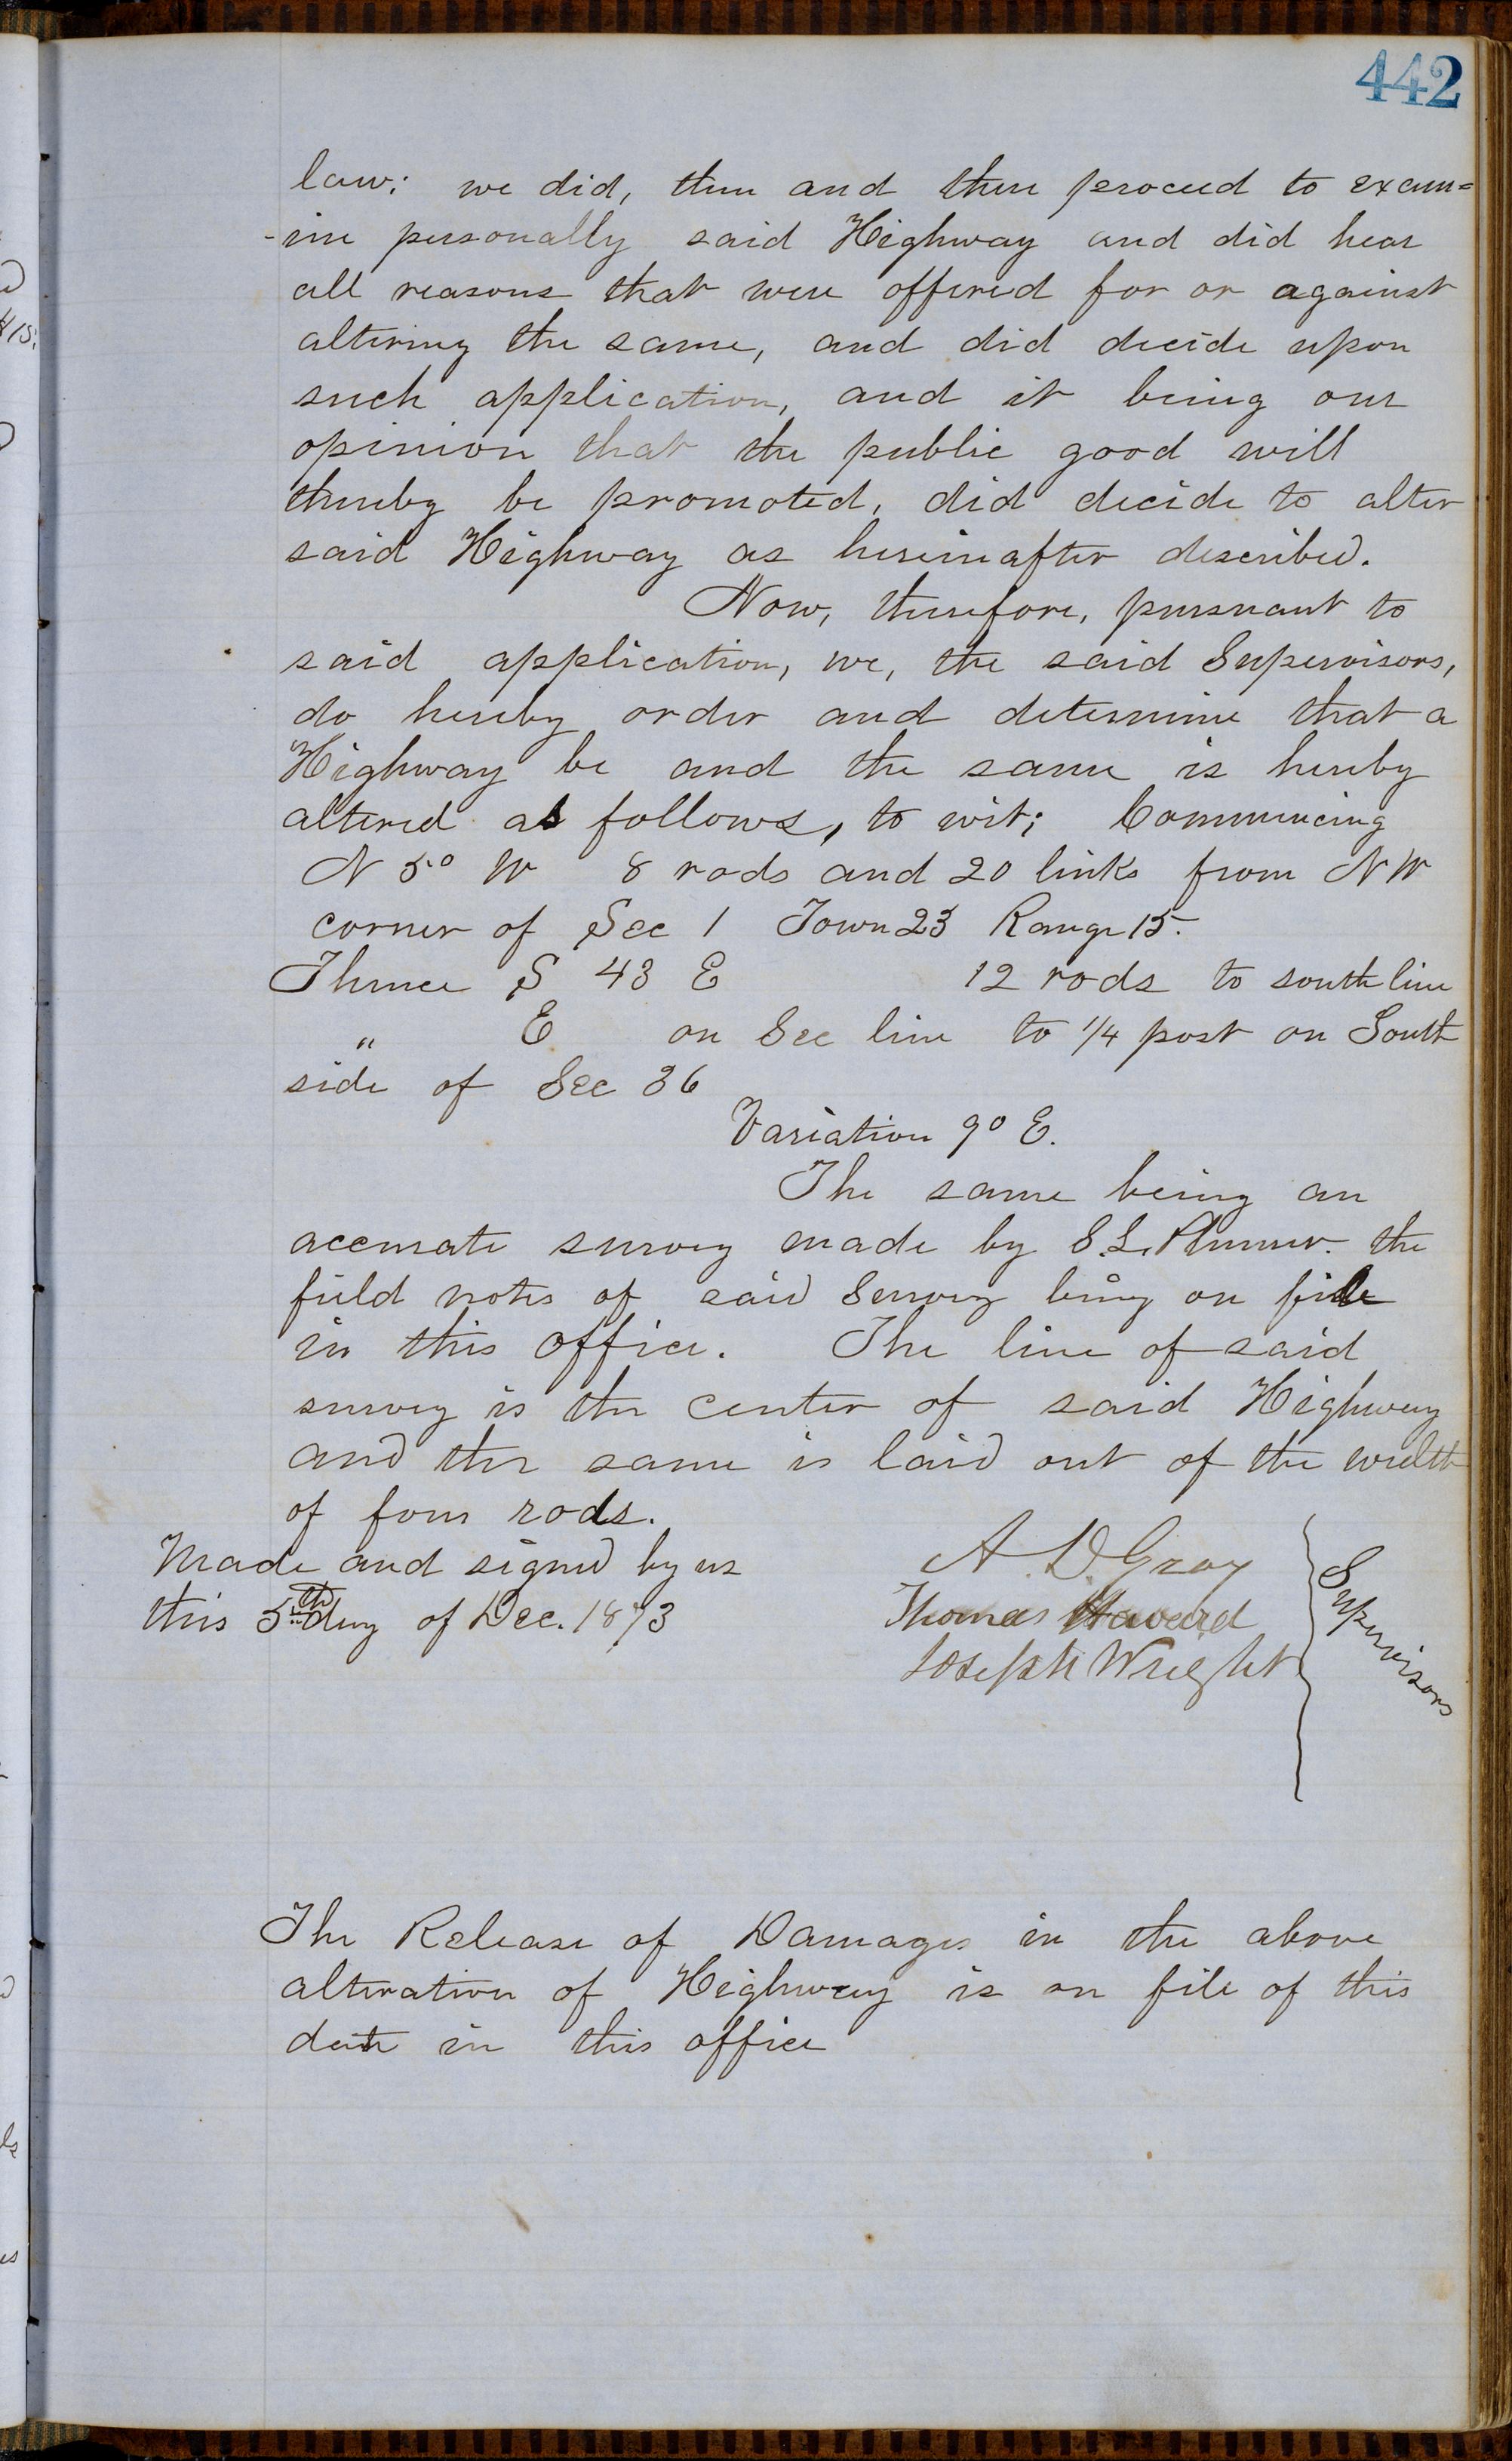 442
law; we did, then and there proceed to exam=
-ine personally said Highway and did hear
all reasons that were offered for or against
altering the same, and did decide upon
such application, and it being our
opinion that the public good will
thereby be promoted, did decide to alter
said Highway as hereinafter described.
Now, therefore, pursuant to
said application, we, the said Supervisors,
do hereby order and determine that a
Highway be and the same is hereby
altered as follows, to wit; Commencing
N 5° W 8 rods and 20 links from N W
corner of Sec 1 Town 23 Range 15.
Thence S 43 E 12 rods to south line
" E on Sec line to 1/4 post on South
side of Sec 36
Variation 9° E.
The same being an
accurate survey made by S. L. Plummer. the
field notes of said Survey being on file
in this office. The line of said
survey is the center of said Highway
and the same is laid out of the width
of four rods.
Made and signed by us
this 5th day of Dec. 1873
A. D. Gray
Thomas Haveard
Joseph Wright
Supervisors
The Release of Damages in the above
alteration of Highway is on file of this
date in this office